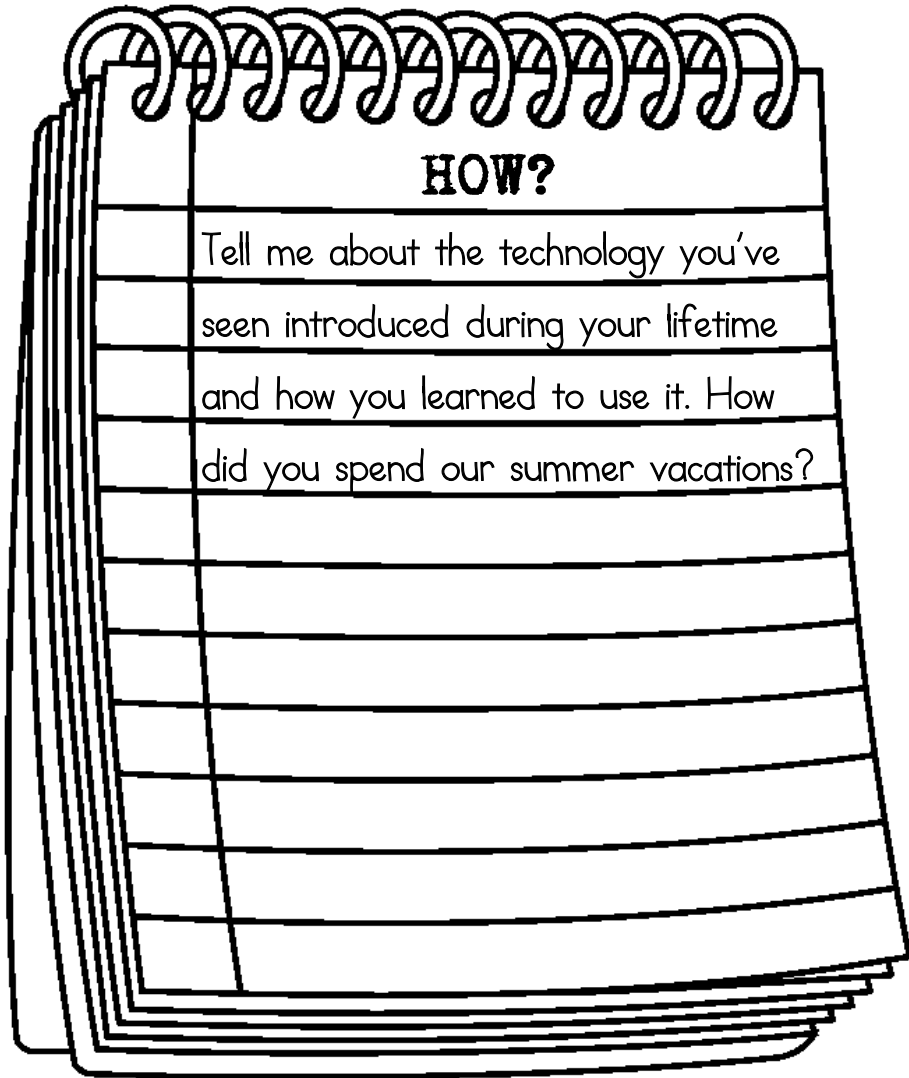 HOW?
Tell me about the technology you've
seen introduced during your lifetime
and how you learned to use it. How
did you spend our summer vacations?